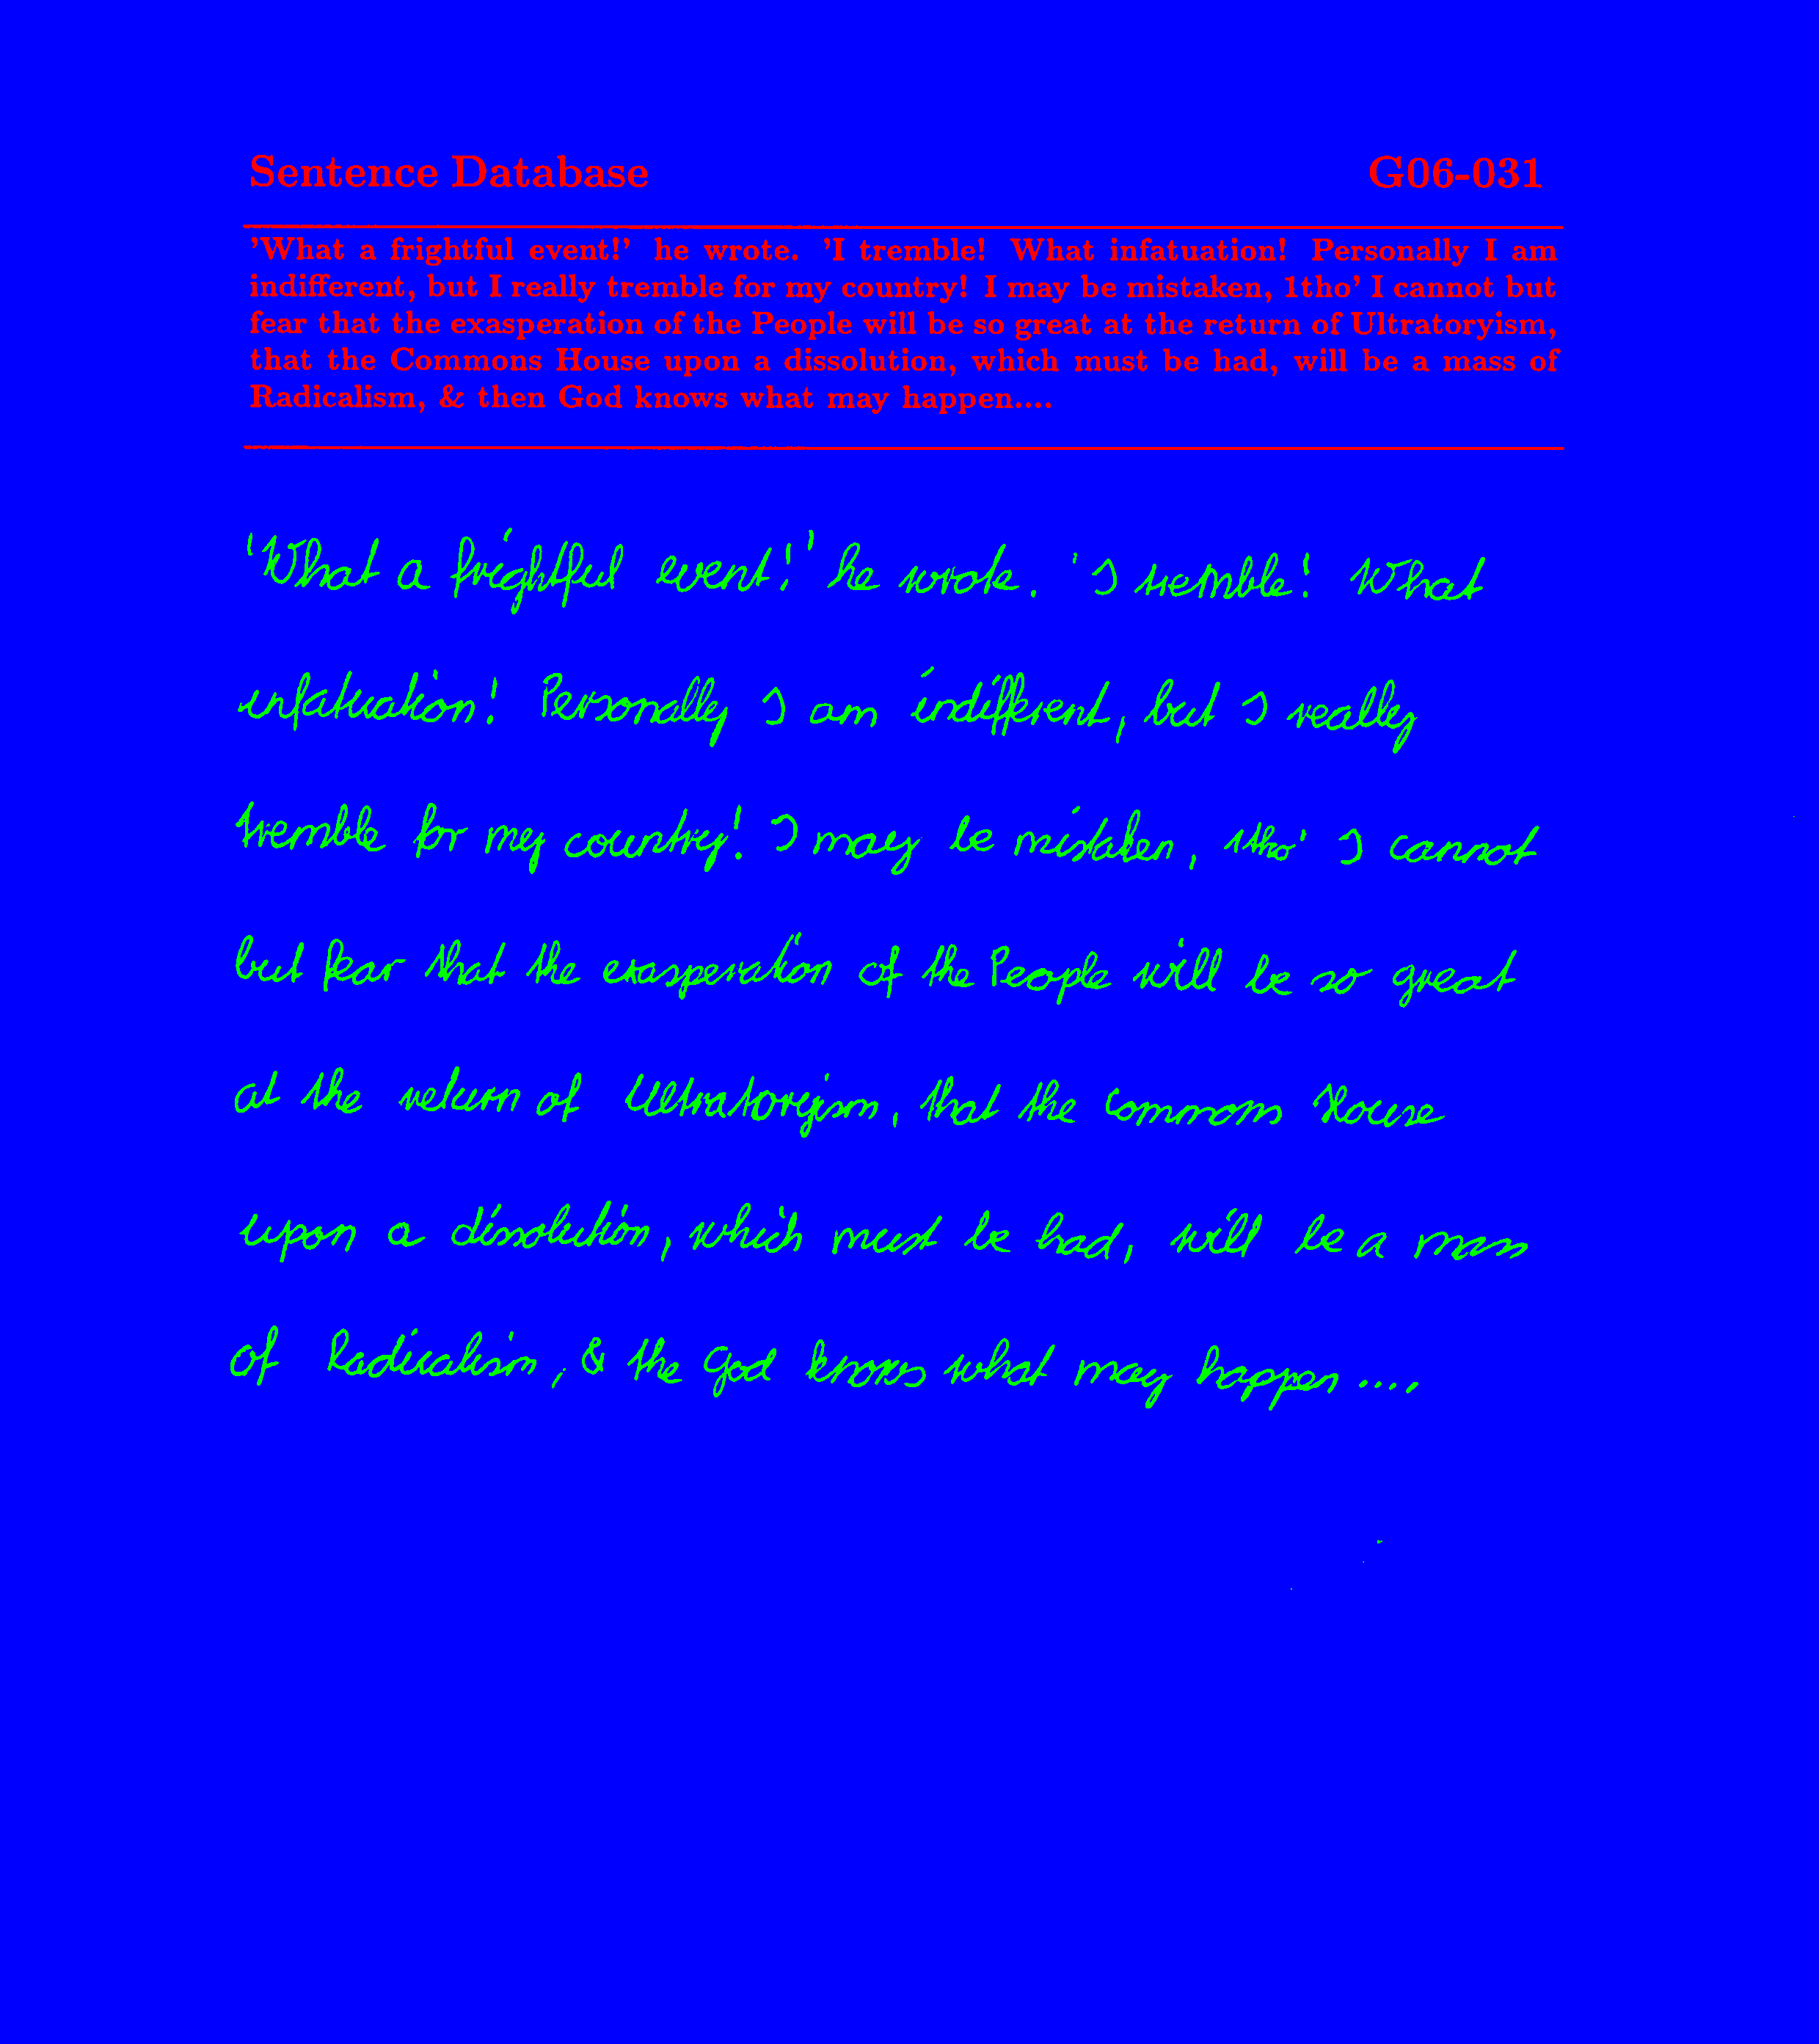 Sentence Database G06-031
'What a frightful event!' he wrote. 'I tremble! What infatuation! Personally I am
indifferent, but I really tremble for my country! I may be mistaken, 1tho' I cannot but
fear that the exasperation of the People will be so great at the return of Ultratoryism,
that the Commons House upon a dissolution, which must be had, will be a mass of
Radicalism, & then God knows what may happen....
'What a frightful event!' he wrote. 'I tremble! What
infatuation! Personally I am indifferent, but I really
tremble for my country! I may be mistaken, 1tho' I cannot
but fear that the exasperation of the People will be so great
at the return of Ultratoryism, that the Commons House
upon a dissolution, which must be had, will be a mass
of Radicalism, & the God knows what may happen....